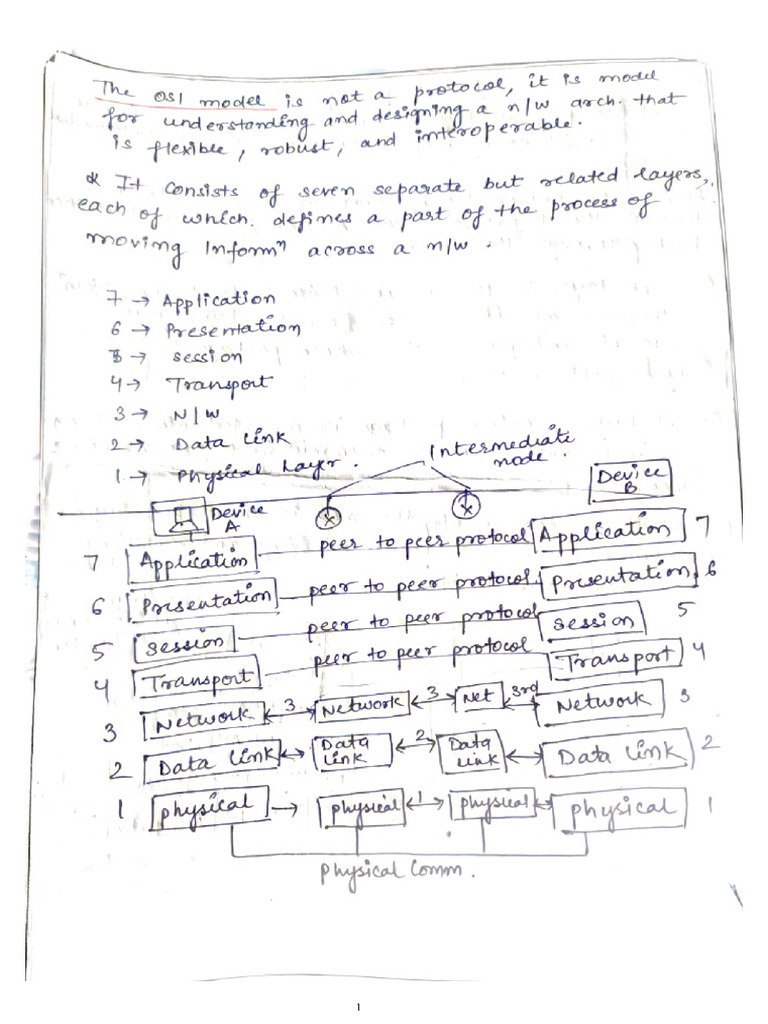 The OSI model is not a protocol, it is model
for understanding and designing a n/w arch. that
is flexible, robust, and interoperable.
* It consists of seven separate but related layers,
each of which defines a part of the process of
moving Informⁿ across a n/w.
7 → Application
6 → Presentation
5 → Session
4 → Transport
3 → N/W
2 → Data Link
1 → Physical Layer.
Intermediate
node.
Device
A
Device
B
7 Application peer to peer protocol Application 7
6 Presentation peer to peer protocol Presentation 6
5 Session peer to peer protocol Session 5
4 Transport peer to peer protocol Transport 4
3 Network 3 Network 3 Net 3rd Network 3
2 Data Link Data Link 2 Data Link Data Link 2
1 physical physical 1 physical physical 1
Physical Comm.
1